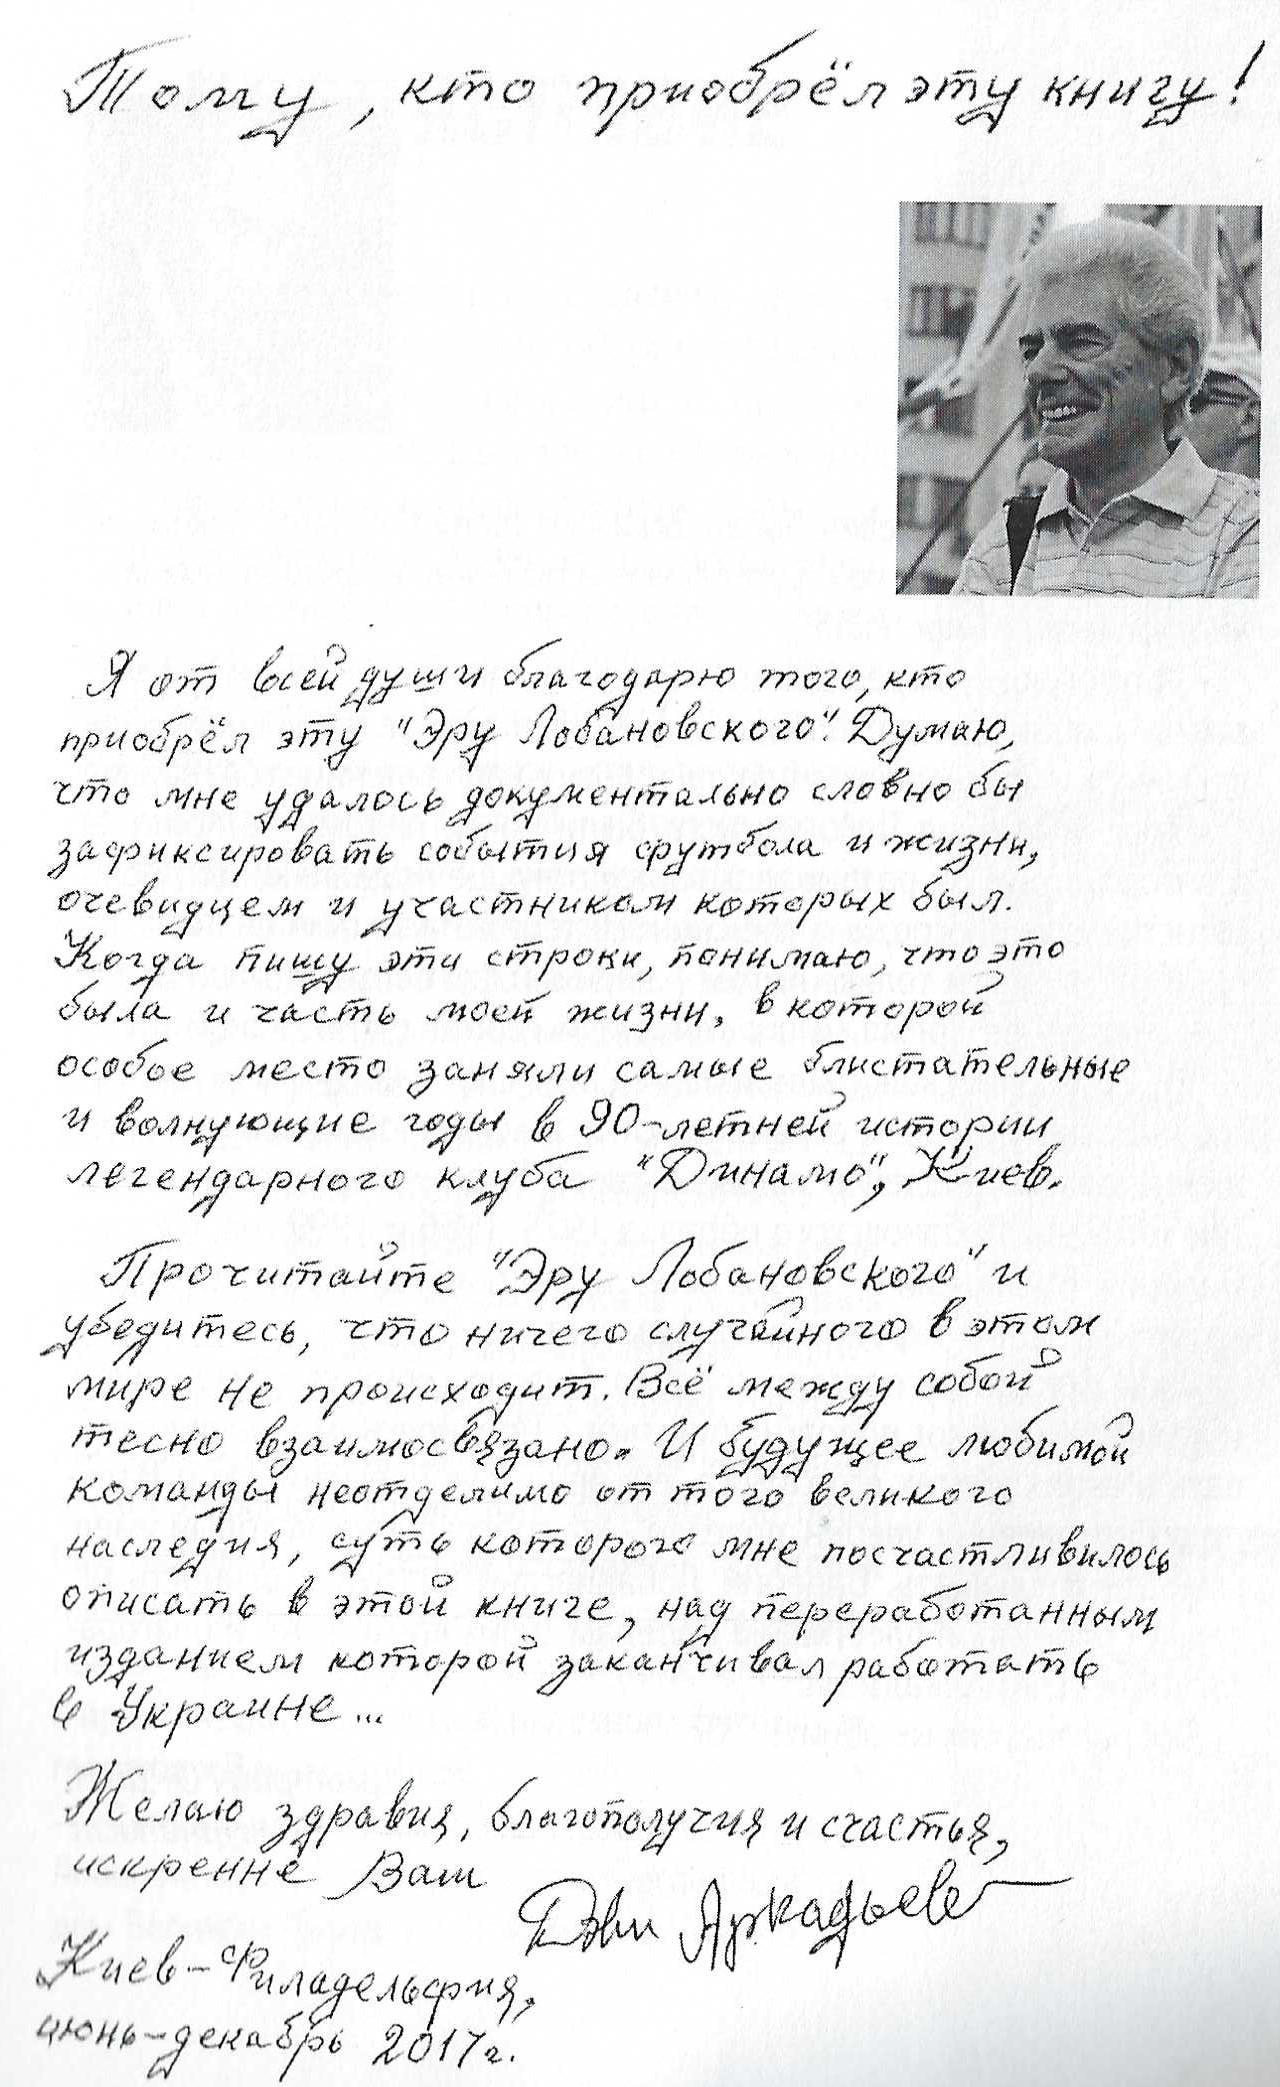 Тому, кто приобрёл эту книгу!
Я от всей души благодарю того, кто
приобрёл эту "Эру Лобановского". Думаю,
что мне удалось документально словно бы
зафиксировать события футбола и жизни,
очевидцем и участником которых был.
Когда пишу эти строки, понимаю, что это
была и часть моей жизни, в которой
особое место заняли самые блистательные
и волнующие годы в 90-летней истории
легендарного клуба "Динамо", Киев.
Прочитайте "Эру Лобановского" и
убедитесь, что ничего случайного в этом
мире не происходит. Всё между собой
тесно взаимосвязано. И будущее любимой
команды неотделимо от того великого
наследия, суть которого мне посчастливилось
описать в этой книге, над переработанным
изданием которой заканчивал работать
в Украине...
Желаю здравия, благополучия и счастья,
искренне Ваш
Дэви Аркадьев
Киев-Филадельфия,
июнь-декабрь 2017г.